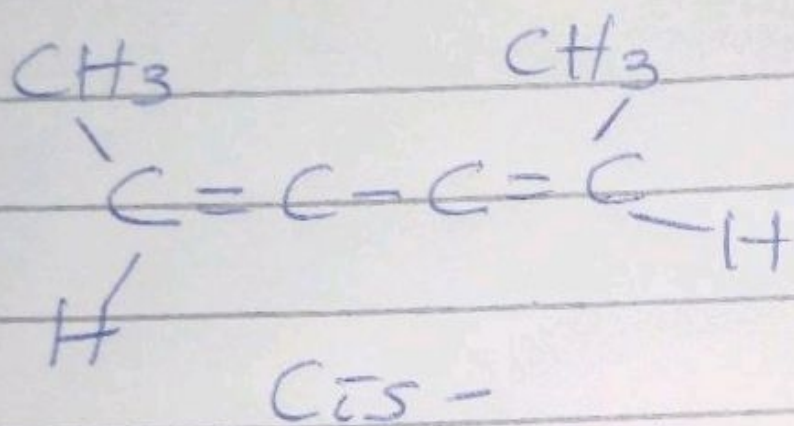 CH3 CH3
C = C - C = C
H H
Cis -